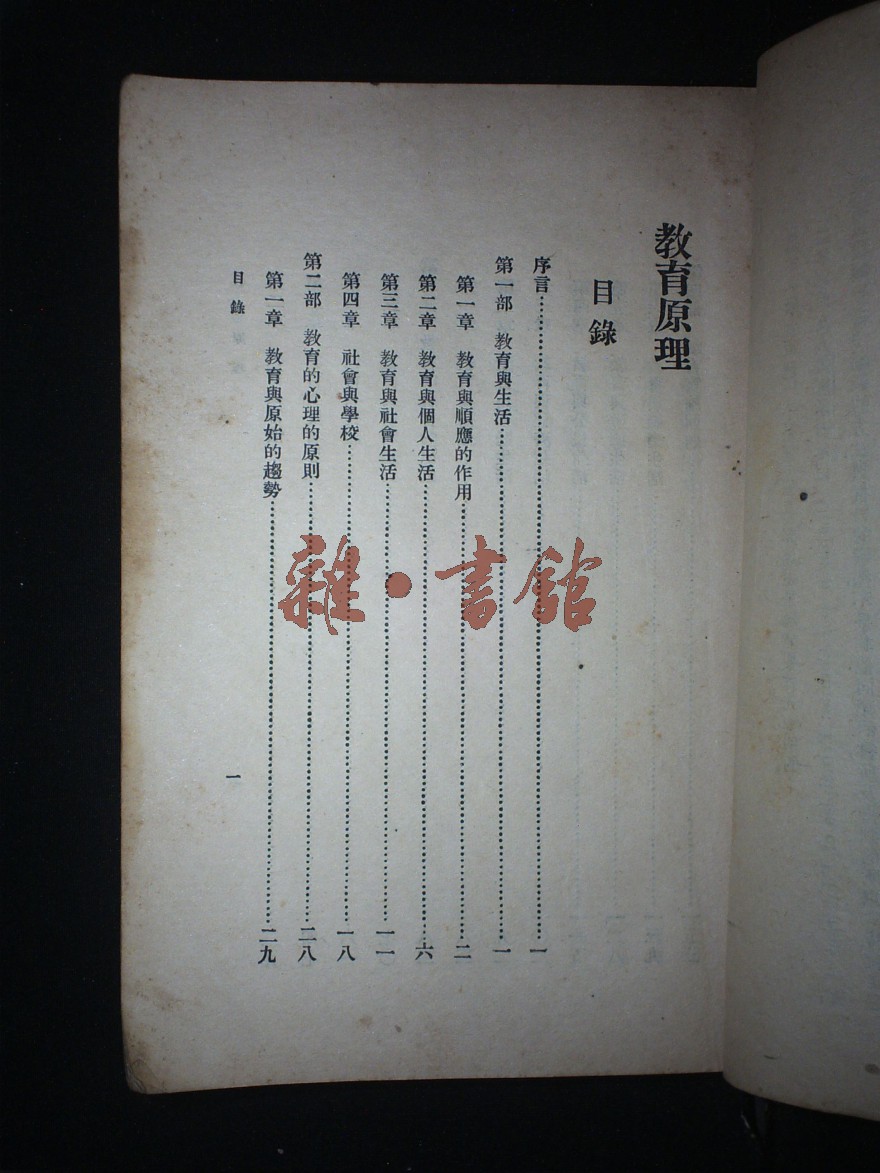 教育原理
目錄
序言……一
第一部 教育與生活……一
第一章 教育與順應的作用……二
第二章 教育與個人生活……六
第三章 教育與社會生活……一一
第四章 社會與學校……一八
第二部 教育的心理的原則……二八
第一章 教育與原始的趨勢……二九
目錄
一
雜·書館